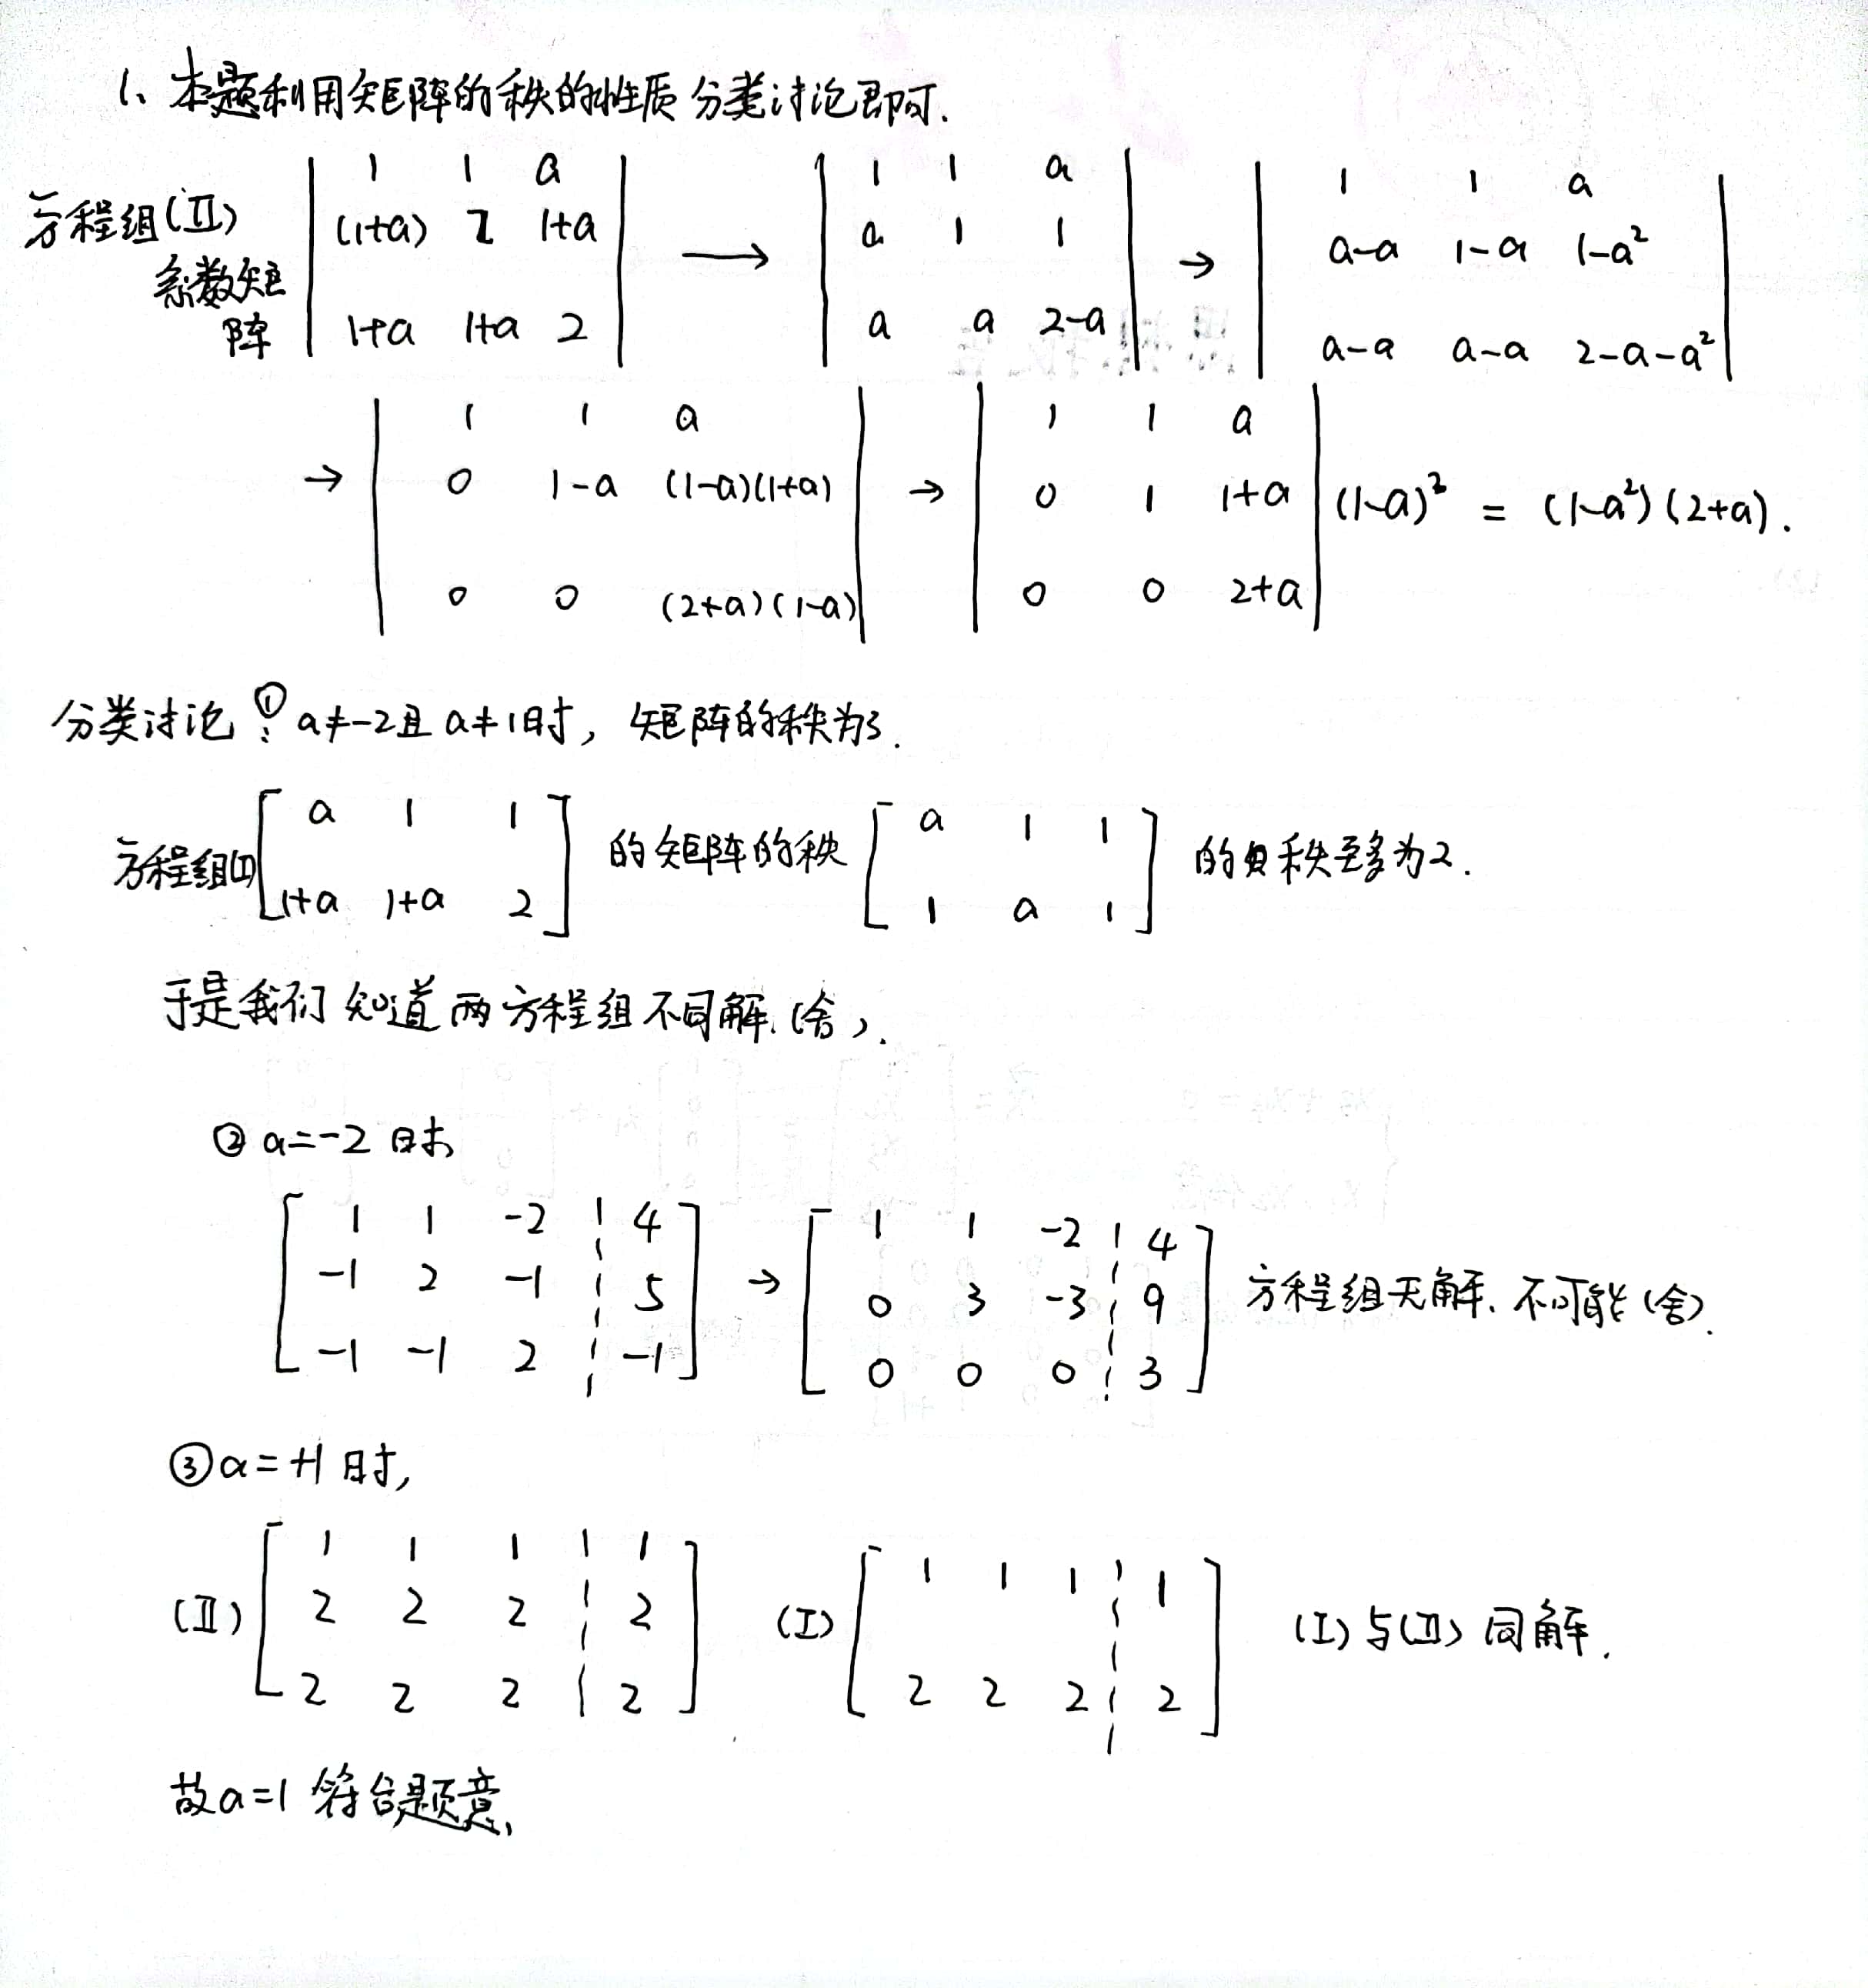 1、本题利用矩阵的秩的性质分类讨论即可.
方程组(Ⅱ)系数矩阵 | 1 1 a ; (1+a) 2 1+a ; 1+a 1+a 2 | → | 1 1 a ; a 1 1 ; a a 2-a | → | 1 1 a ; a-a 1-a 1-a² ; a-a a-a 2-a-a² |
→ | 1 1 a ; 0 1-a (1-a)(1+a) ; 0 0 (2+a)(1-a) | → | 1 1 a ; 0 1 1+a ; 0 0 2+a | (1-a)² = (1-a²)(2+a).
分类讨论: ① a≠-2且a≠1时, 矩阵的秩为3.
方程组(I) [ a 1 1 ; 1+a 1+a 2 ] 的矩阵的秩 [ a 1 1 ; 1 a 1 ] 的秩至多为2.
于是我们知道两方程组不同解.(舍).
② a=-2时,
[ 1 1 -2 ¦ 4 ; -1 2 -1 ¦ 5 ; -1 -1 2 ¦ -1 ] → [ 1 1 -2 ¦ 4 ; 0 3 -3 ¦ 9 ; 0 0 0 ¦ 3 ] 方程组无解.不可能(舍).
③ a=+1时,
(Ⅱ) [ 1 1 1 ¦ 1 ; 2 2 2 ¦ 2 ; 2 2 2 ¦ 2 ] (I) [ 1 1 1 ¦ 1 ; 2 2 2 ¦ 2 ] (I)与(Ⅱ)同解.
故a=1符合题意.